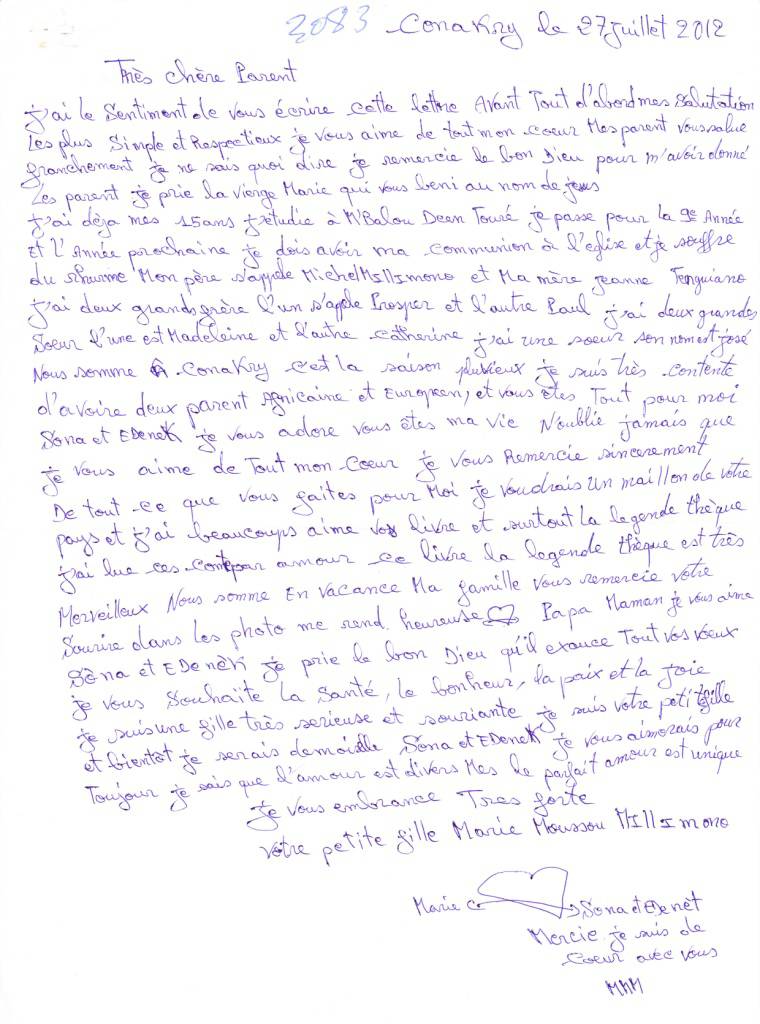 3083 Conakry le 27 juillet 2012
Très chère Parent
j'ai le Sentiment de vous écrire cette lettre Avant Tout d'abord mes salutation
Les plus Simple et Respectieux je vous aime de tout mon coeur Mes parent vous salue
franchement je ne sais quoi dire je remercie le bon Dieu pour m'avoir donné
Les parent je prie la vierge Marie qui vous beni au nom de jesus
j'ai déja mes 15ans j'etudie à M'Balou Dean Touré je passe pour la 9e Année
Et l'Année prochaine je dois avoir ma communion à l'eglise et je souffre
du rhurme Mon père s'appele Michel Millimono et Ma mère jeanne Tenguiano
j'ai deux grands frère l'un s'applle Prosper et l'autre Paul j'ai deux grandes
Soeur l'une est Madeleine et l'autre catherine j'ai une soeur son nom est josé
Nous somme à Conakry c'est la saison pluvieux je suis très contente
d'avoire deux parent Africaine et European, et vous êtes Tout pour moi
Sona et EDeneK je vous adore vous êtes ma vie N'oublie jamais que
je vous aime de Tout mon coeur je vous Remercie sincerement
De tout ce que vous faites pour Moi je voudrais un maillon de votre
pays et j'ai beaucoups aime vos livre et surtout la legende thèque
j'ai lue ces par amour ce livre la legende thèque est très
Merveilleux Nous somme En vacance Ma famille vous remercie votre
Sourire dans les photo me rend heureuse Papa Maman je vous aime
Sona et EDeneK je prie le bon Dieu qu'il exauce Tout vos voeux
je vous Souhaite la Santé, le bonheur, la paix et la joie
je suis une fille très serieuse et souriante je suis votre petite fille
et bientôt je serais demoiselle Sona et EDeneK je vous aimerais pour
Toujour je sais que l'amour est divers Mes le parfait amour est unique
je vous embrance Tres forte
votre petite fille Marie Moussou Millimono
Marie Sona et EDeneK
Mercie je suis de
coeur avec vous
MMM